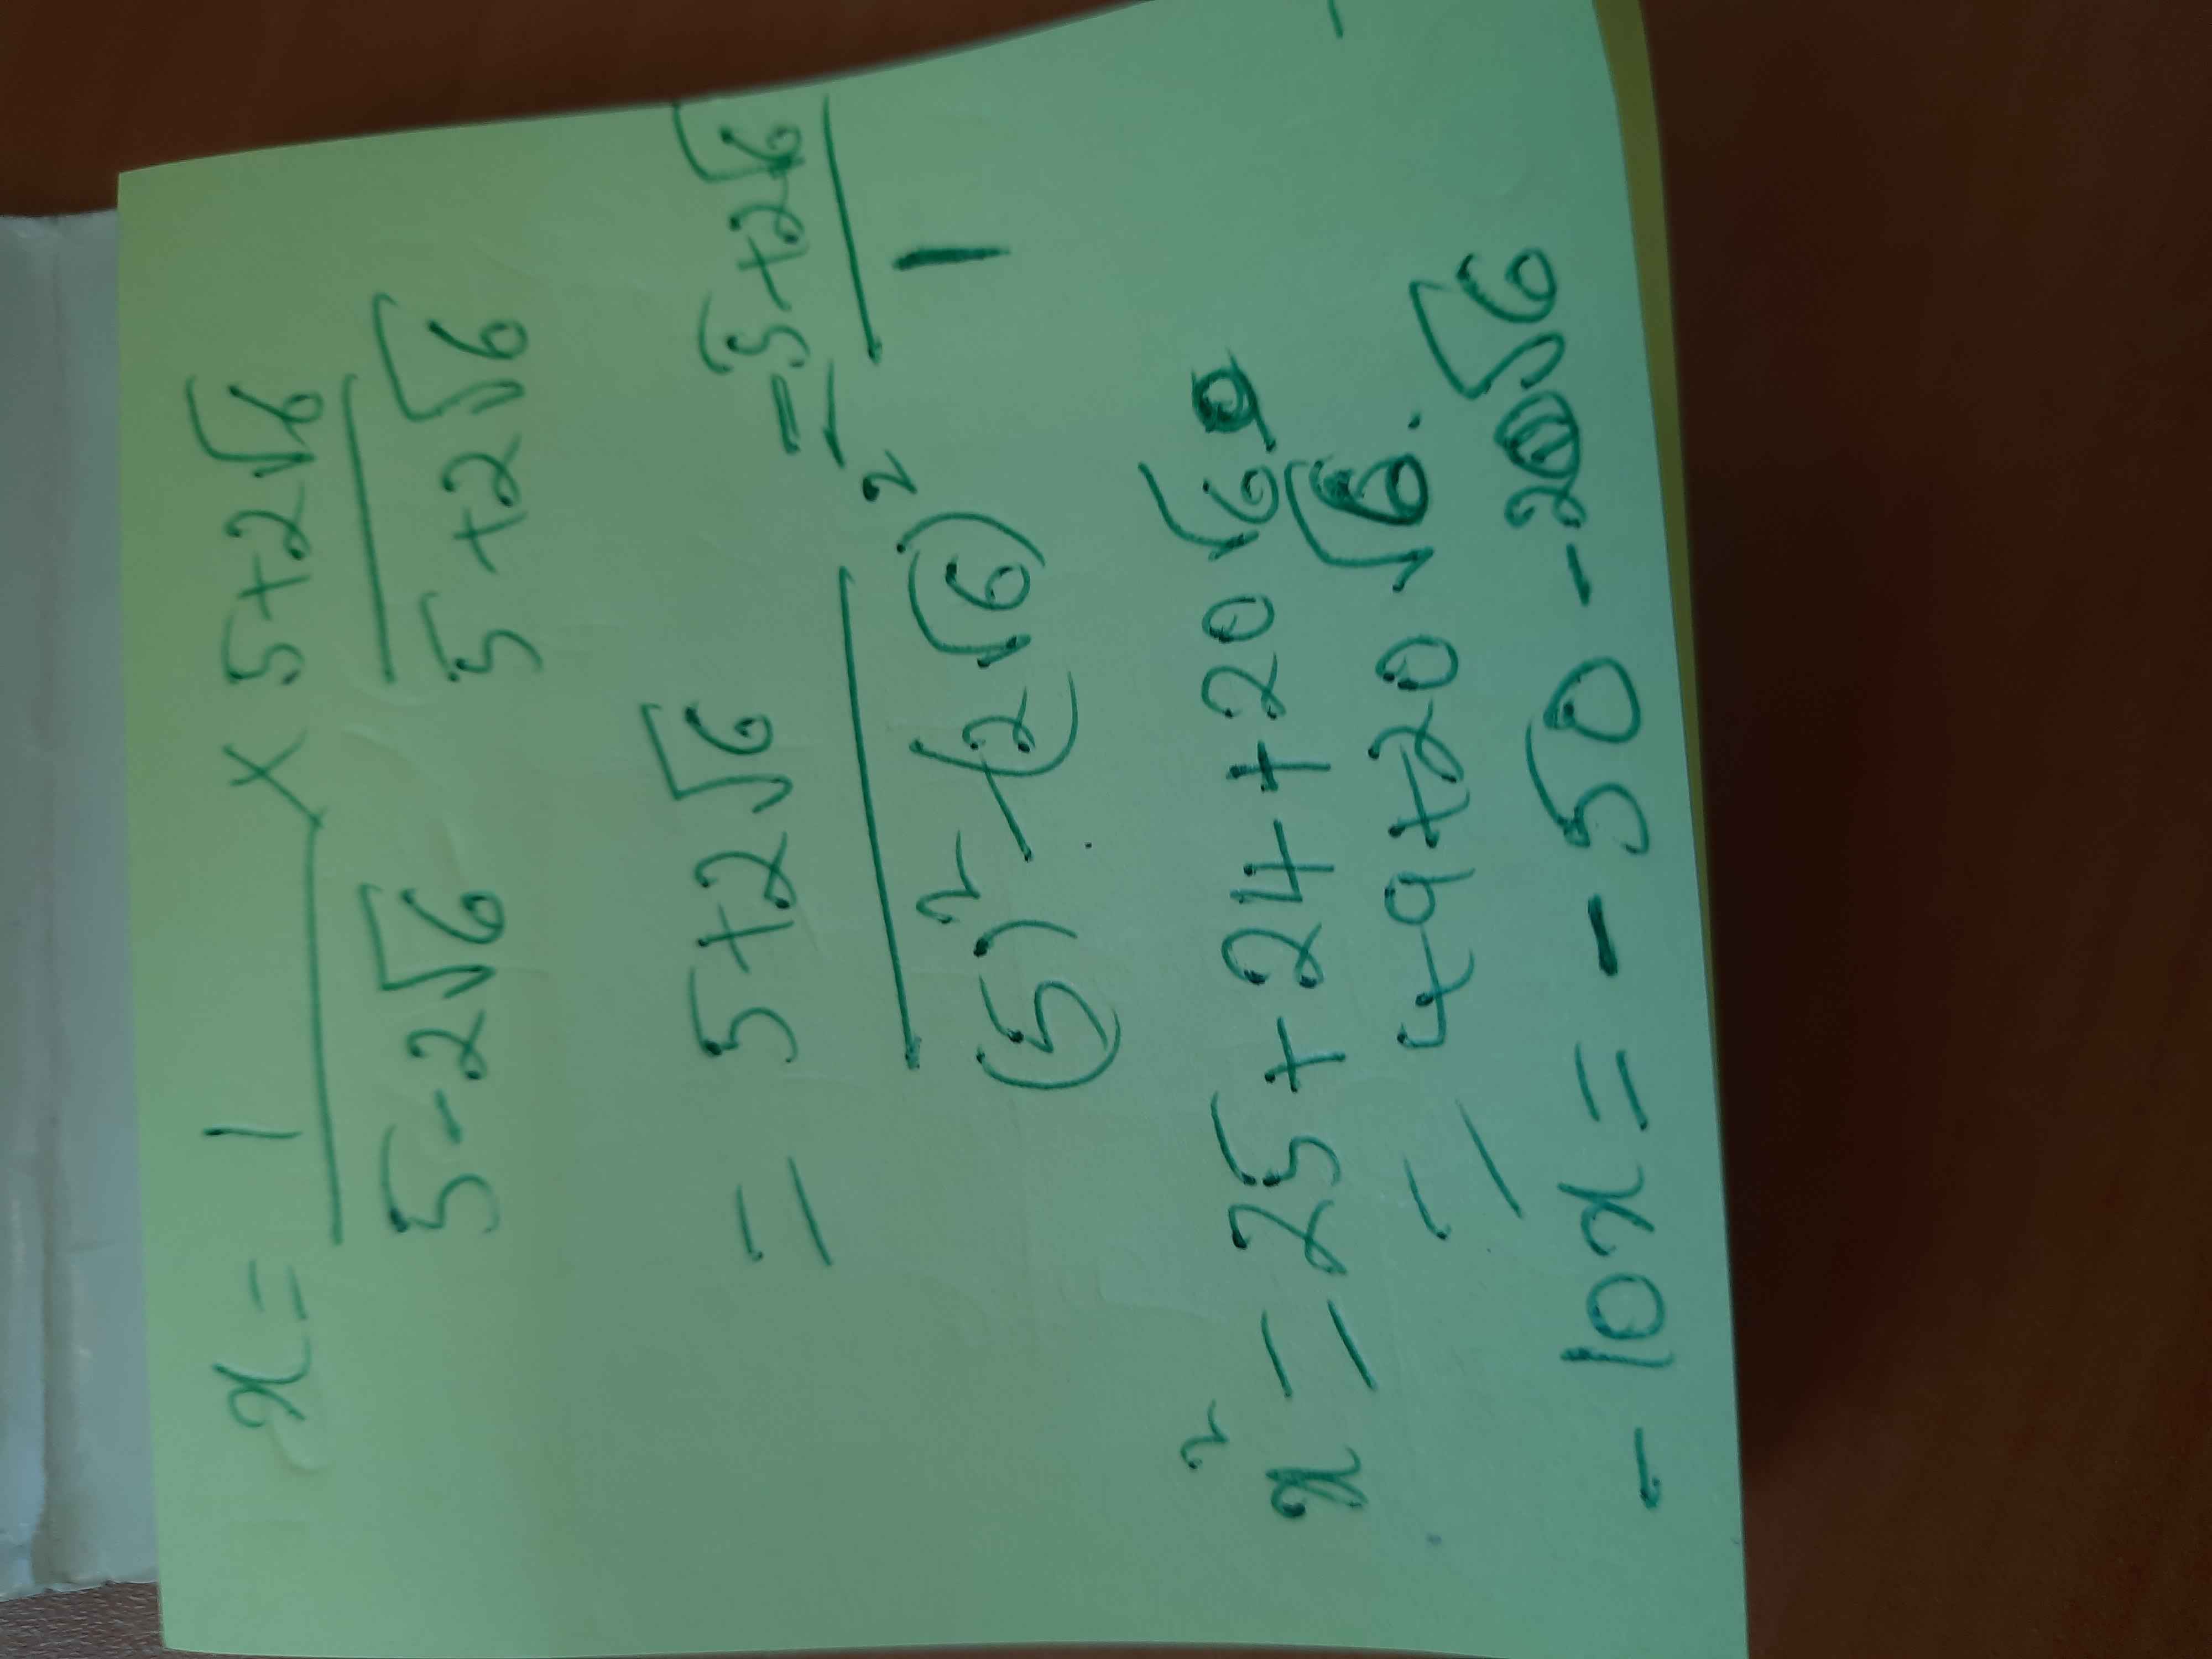 x = 1/(5-2√6) × (5+2√6)/(5+2√6)
= (5+2√6)/((5)² - (2√6)²) = (5+2√6)/1
x² = 25 + 24 + 20√6
= 49 + 20√6.
- 10x = - 50 - 20√6